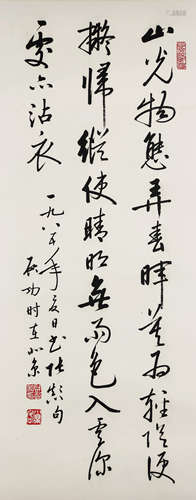 山光物態弄春暉莫為輕陰便
擬歸縱使晴明無雨色入雲深
處亦沾衣
一九八年夏日書張顛句
啟功時在北京